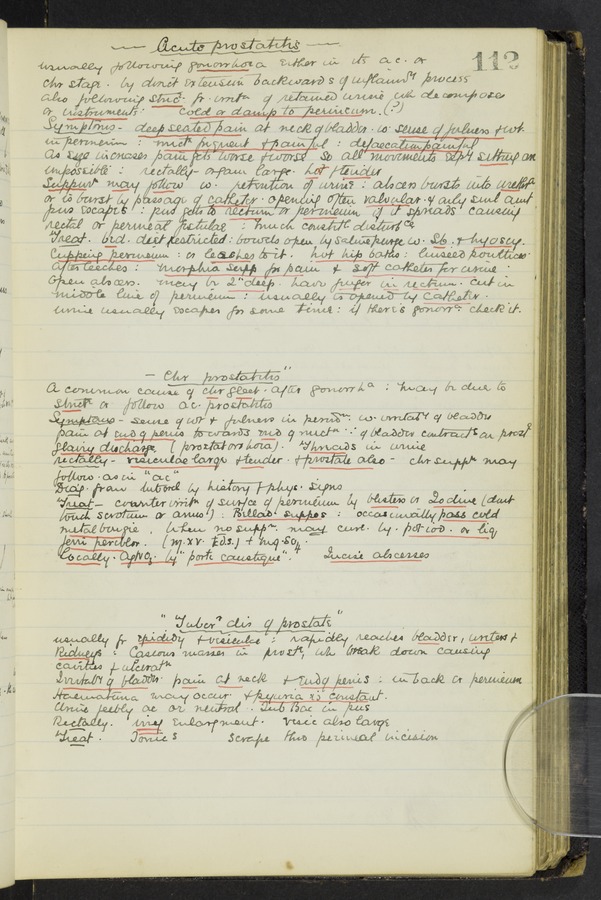 Acute prostatitis
113
usually following gonorrhoea either in its ac. or
chr stage. by direct extension backwards of inflamy process
also following stric. fr. irritn of retained urine wh decomposes
or instruments. Cold or damp to perineum. (?)
Symptoms - deep seated pain at neck of bladder. w. sense of fulness & wt.
in perineum : mict frequent & painful : defaecation painful
As size increases pain gets worse & worse so all movements espy sitting are
impossible : rectally - organ large. hot & tender
Suppurn may follow w. retention of urine : abscess bursts into urethra
or is burst by passage of catheter. opening often valvular & only small amt
pus escapes : pus gets to rectum or perineum if it spreads causing
rectal or perineal fistulae : much constitl disturbce
Treat. bed. diet restricted : bowels open by saline purge w. & hyoscy.
Cupping perineum : or leeches to it. hot hip baths : linseed poultices
after leeches : morphia supp for pain & soft catheter for urine :
Open abscess. may be 2" deep. have finger in rectum. cut in
middle line of perineum : usually is opened by catheter.
urine usually escapes for some time : if there's gonorr check it.
- Chr prostatitis"
A common cause of chr gleet. after gonorrha : may be due to
strict or follow ac. prostatitis
Symptoms - sense of wt & fulness in perinm w. irritaty of bladder
pain at end of penis towards end of mictn ∵ of bladder contracts on prost
Glairy discharge (prostatorrhoea). Threads in urine
rectally - vesiculae large & tender. & prostate also - chr suppn may
follow. as in "ac"
Diag. from tubercl by history & phys. signs
Treat - counter irritn of surface of perineum by blisters or Iodine (dont
touch scrotum or anus!) : Bellad. suppos : occasionally pass cold
metal bougie. When no suppn. may cure by. pot iod. or liq
ferri perchlor. (m.xv. t.d.s.) + mg.SO4
Locally. AgNO3 by "porte caustique". Incise abscesses
"Tuberr dis of prostate"
usually fr epididy & vesiculae : rapidly reaches bladder, ureters &
Kidneys : Caseous masses in prost, wh break down causing
cavities & ulceratn
Irritaby of bladder. pain at neck & end of penis : in back or perineum
Haematuria may occur & pyuria is constant.
Urine feebly ac or neutral. Tub Bac in pus
Rectally. irreg enlargment. vesic also large
Treat. Tonics scrape thro perineal incision